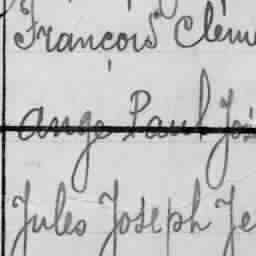 François Clém
Ange Paul Jos
Jules Joseph Je